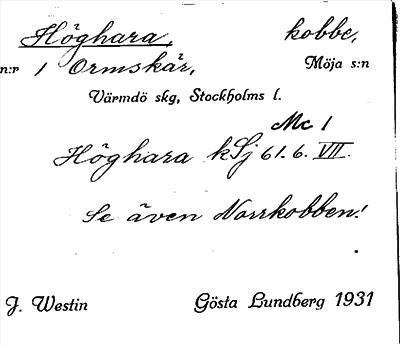 Höghara, kobbe,
n:r 1 Ormskär, Möja s:n
Värmdö skg, Stockholms l.
Mc 1
Höghara kSj 61. 6. VII.
Se även Norrkobben!
J. Westin Gösta Lundberg 1931